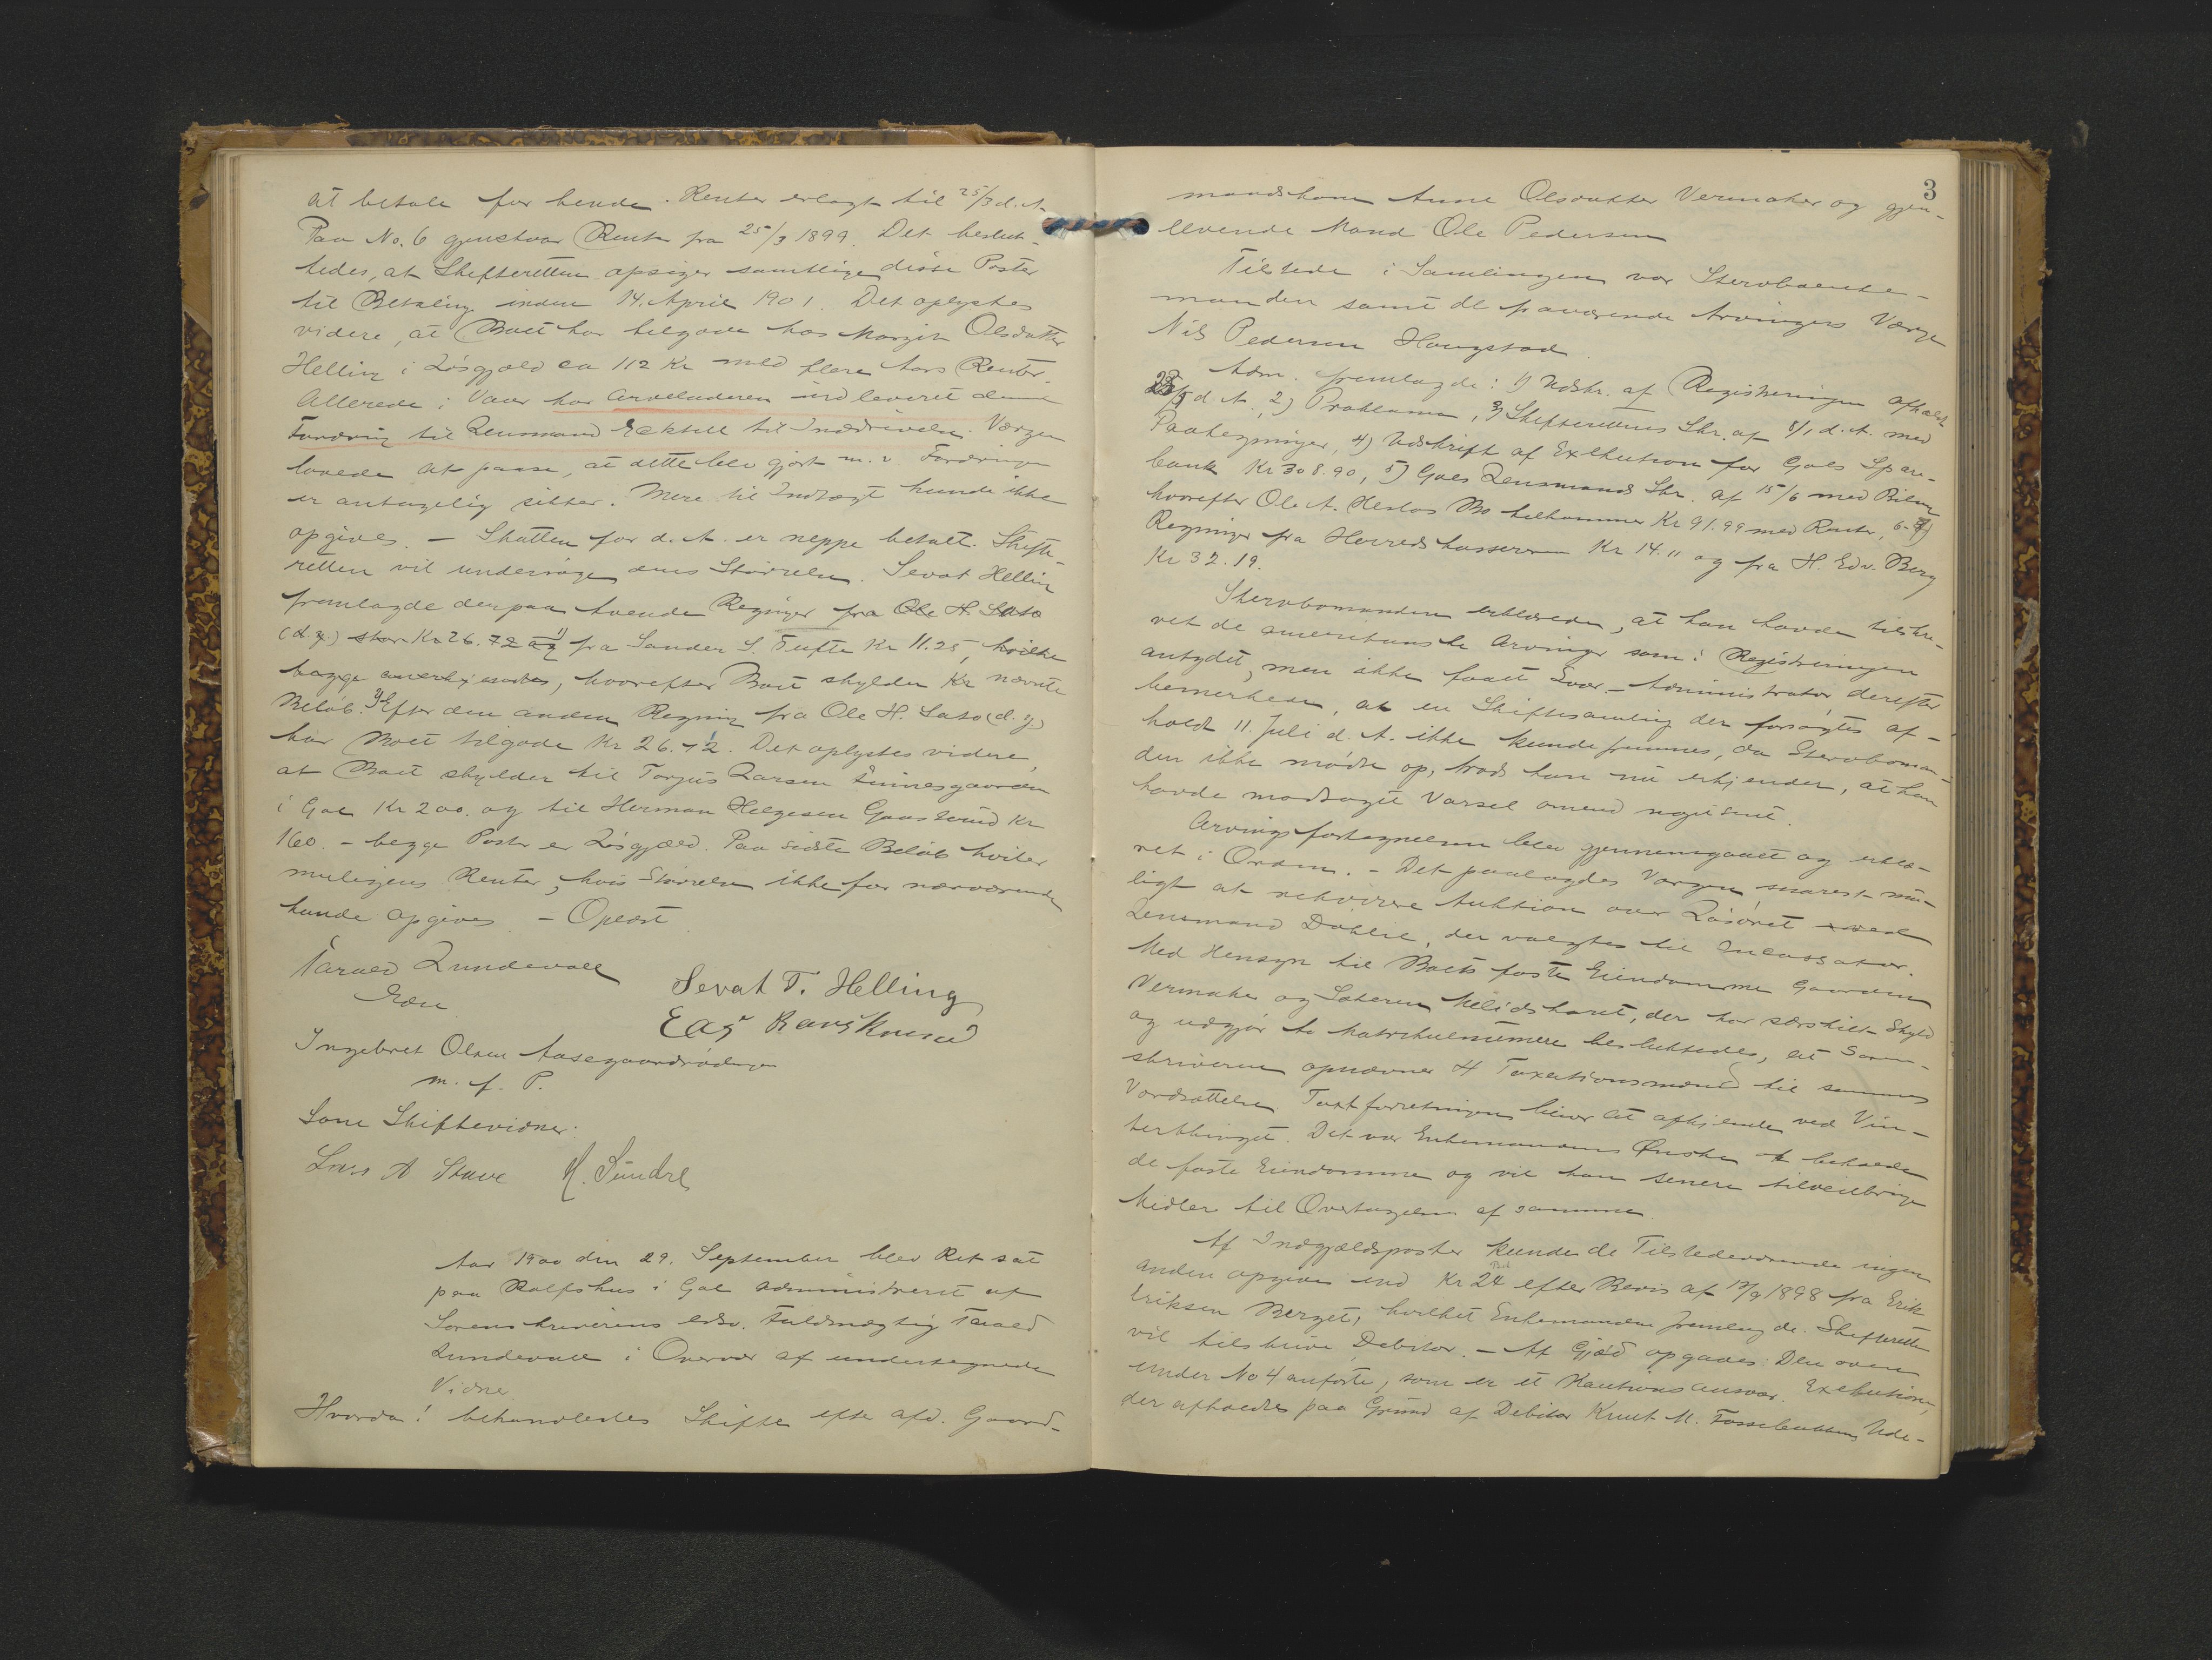 at betale for hende. Renter erlagt til 25/3 d. A.
Paa No. 6 gjenstaar Rente fra 25/3 1899. Det beslut-
tedes, at Skifteretten opsiger samtlige disse Poster
til Betaling inden 14. April 1901. Det oplystes
videre, at Boet har tilgode hos Margit Olsdatter
Helling i Løsgjæld ca 112 Kr med flere Aars Renter.
Allerede i Vaar har Arveladeren indleveret denne
Fordring til Lensmand Ecktell til Inddrivelse. Værgen
lovede at paase, at dette blev gjort m. v. Fordringen
er antagelig sikker. Mere til Indtægt kunde ikke
opgives. – Skatten for d. A. er neppe betalt. Skifte-
retten vil undersøge dens Størrelse. Sevat Helling
fremlagde derpaa tvende Regninger fra Ole H. Sato
(d. y.) stor Kr 26.72 og 1) fra Sander S. Tufte Kr 11.25, hvilke
begge anerkjendtes, hvorefter Boet skylder Kr nævnte
Beløb. 2) Efter den anden Regning fra Ole H. Sato (d. y.)
har Boet tilgode Kr 26.12. Det oplystes videre,
at Boet skylder til Torgus Larsen Trinesgaarden
i Gol Kr 200. og til Herman Helgesen Gaasterud Kr
160. – begge Poster er Løsgjæld. Paa sidste Beløb hviler
muligens Renter, hvis Størrelse ikke for nærværende
kunde opgives – Oplæst.
Tarald Lundevall
Edsv.
Sevat T. Helling
Ingebret Olsen Aasegaardsødegn
m. f. P.
Som Skiftevidner:
Lars A Stave N. Sundre
Aar 1900 den 29. September blev Ret sat
paa Rolfshus i Gol administreret af
Sorenskriverens edsv. Fuldmægtig Tarald
Lundevall i Overvær af undertegnede
Vidner.
Hvorda! behandledes Skifte efter afd. Gaard-
3
mandskone Anne Olsdatter Vermaker og gjen-
levende Mand Ole Pedersen
Tilstede i Samlingen var Stervboenke-
manden samt de fraværende Arvingers Værge
Nils Pedersen Haugstad.
Adm. fremlagde: 1) Udskr. af Registreringen afholdt
23/5 d. A., 2) Proklama, 3) Skifterettens Skr. af 8/1 d. A. med
Paategninger, 4) Udskrift af Exekution for Gols Spare-
bank Kr 308.90, 5) Gols Lensmands Skr. af 15/6 med Bilag
hvorefter Ole A. Heslas Bo tilkommer Kr 91.99 med Rente, 6-7)
Regninger fra Herredskassereren Kr 14." og fra H. Edv. Berg
Kr 32.19.
Stervbomanden erklærede, at han havde tilskre-
vet de amerikanske Arvinger som i Registreringen
antydet, men ikke faaet Svar. – Administrator derefter
bemerkede, at en Skiftesamling der forsøgtes af-
holdt 11. Juli d. A. ikke kunde fremmes, da Stervboman-
den ikke mødte op, trods han nu erkjender, at han
havde modtaget Varsel omend noget sent.
Arvingsfortegnelsen blev gjennemgaaet og erklæ-
ret i Orden. – Det paalagdes Værgen snarest mu-
ligt at rekvirere Auktion over Løsøret ved
Lensmand Døhlie, der valgtes til Inkassator.
Med Hensyn til Boets faste Eiendomme Gaarden
Vermaker og Sæteren, der har særskilt Skyld
og udgjør to Matrikulnumere besluttedes, at Soren-
skriveren opnævner 4 Taxationsmænd til sammes
Værdsættelse. Taxtforretningen bliver at afhjemle ved Vin-
terthinget. Det var Enkemandens Ønske at beholde
de faste Eiendomme og vil han senere tilveiebringe
Midler til Overtagelse af samme.
Af Indgjældsposter kunde de Tilstedeværende ingen
anden opgives end Kr 24 efter Bevis af 12/9 1898 fra Erik
Eriksen Berget, hvilket Enkemanden fremlagde. Skifteretten
vil tilskrive Debitor. – Af Gjæld opgaves: Den oven
under No 4 anførte, som er et Kautionsansvar. Exekutionen,
der afholdtes paa Grund af Debitor Knut M. Fossebakkens Ude-